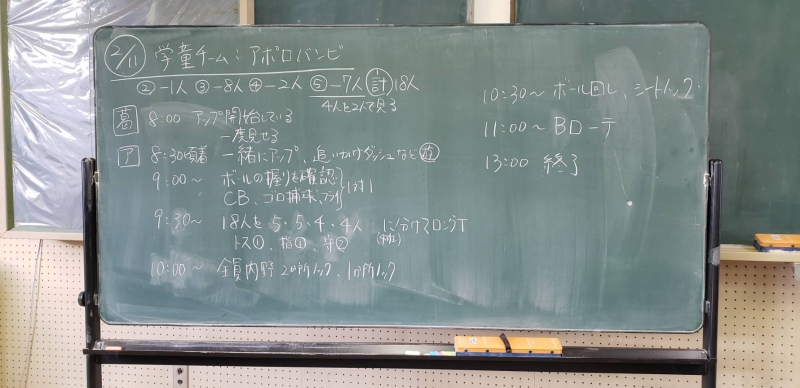 2/11 学童チーム:アポロバンビ
②-1人 ③-8人 ④-2人 ⑤-7人 計18人
4人を2人で見る
葛 8:00 アップ開始している
一度見せる
ア 8:30頃着 一緒にアップ、追いかけダッシュなど
9:00~ ボールの握りを確認
CB、ゴロ捕球、フライ 1対1
9:30~ 18人を5・5・4・4人に分けてロングT
トス①、指①、守②
10:00~ 全員内野2か所ノック、1か所ノック
10:30~ ボール回し、シートノック
11:00~ Bローテ
13:00 終了